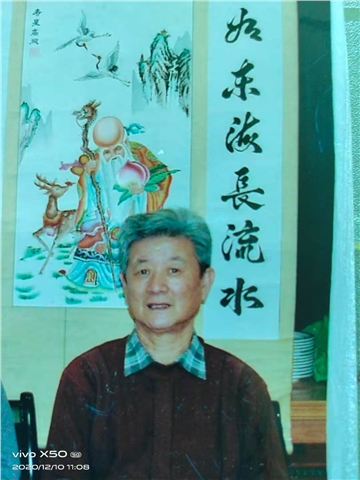 寿星高照
如东海長流水
vivo X50 5G
2020/12/10 11:08